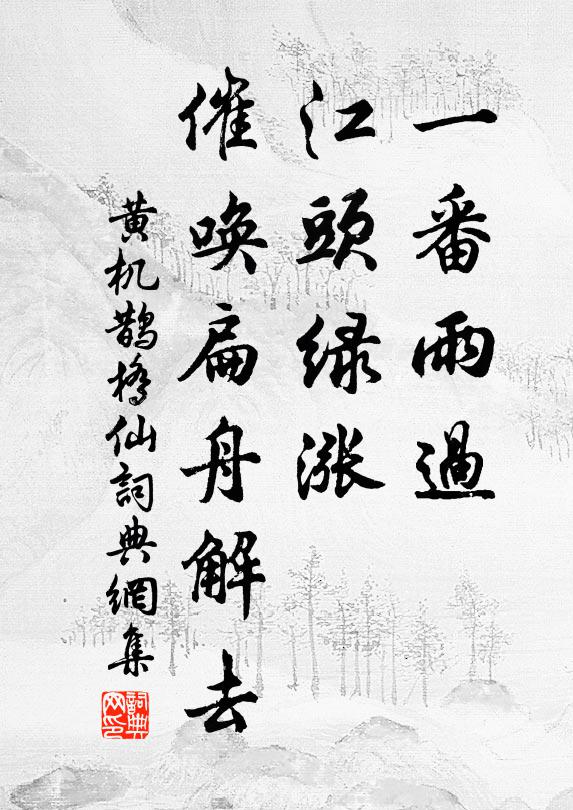 一番雨過
江頭緑漲
催喚扁舟解去
黄机鵲橋仙詞典網集
詞典网印